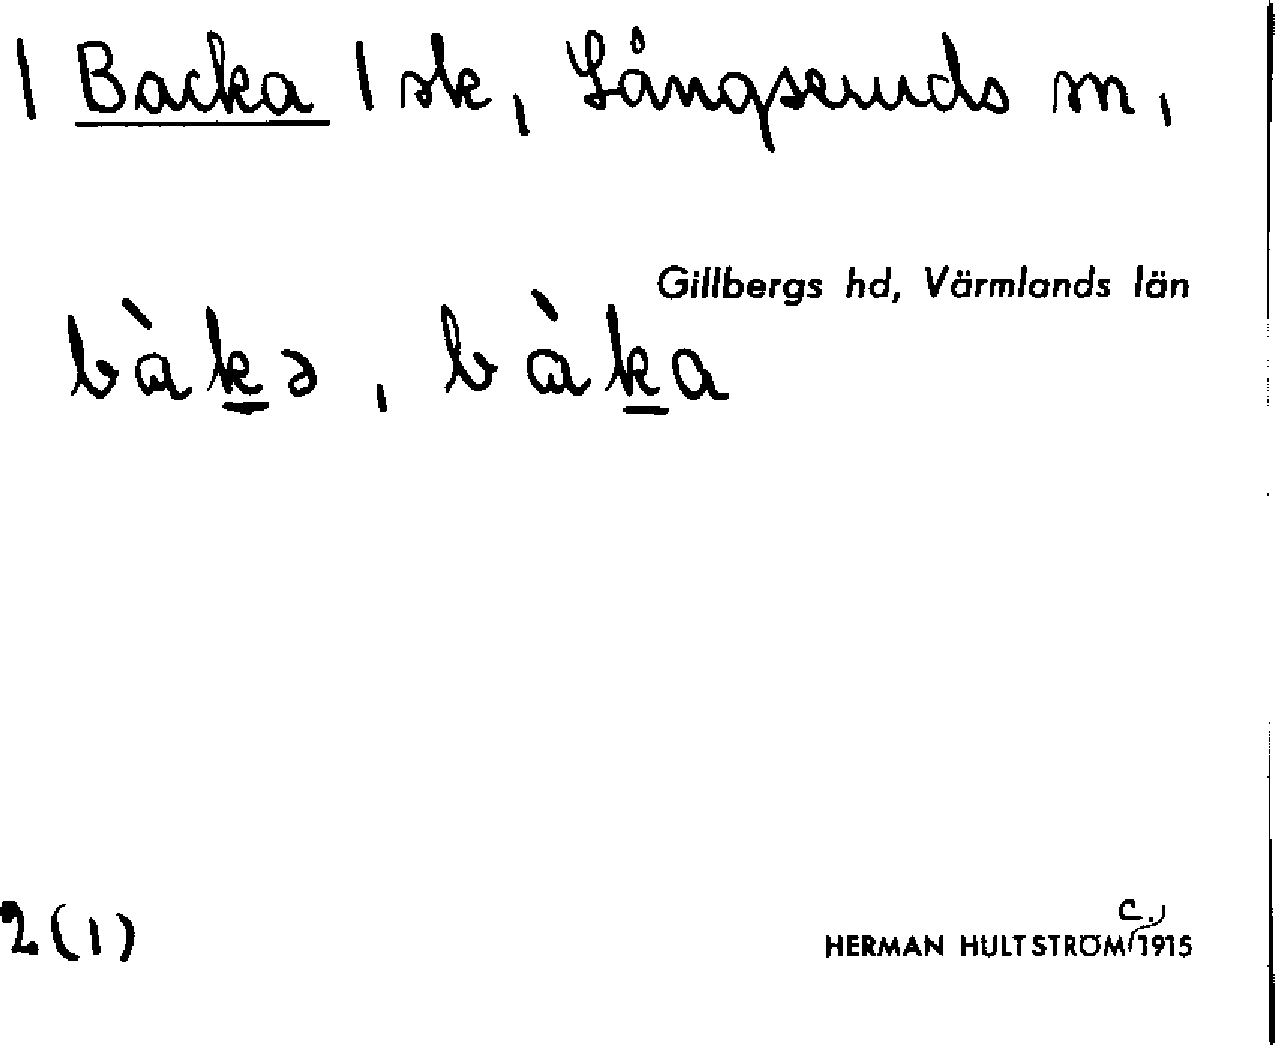 | Backa | sk, Långseruds sn,
Gillbergs hd, Värmlands län
bàkə, bàka
2(1)
HERMAN HULTSTRÖM c. 1915